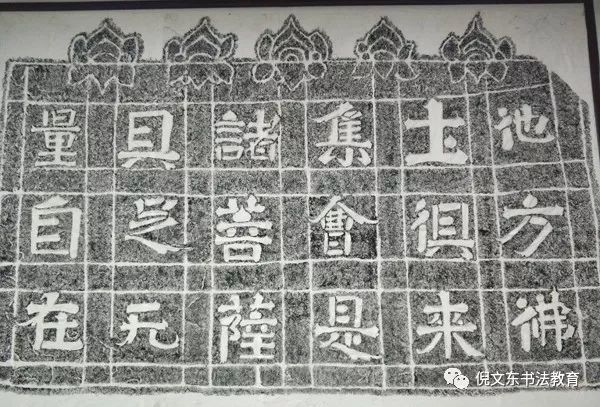 他方佛
土俱来
集會是
諸菩薩
具足无
量自在
倪文东书法教育